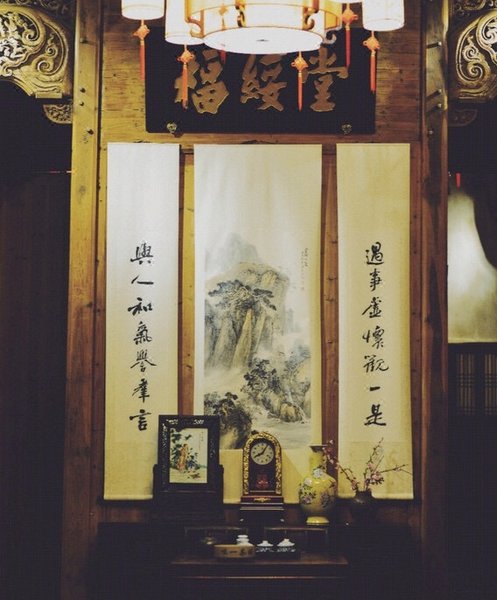 福綏堂
遇事虛懷觀一是
與人和氣詧羣言